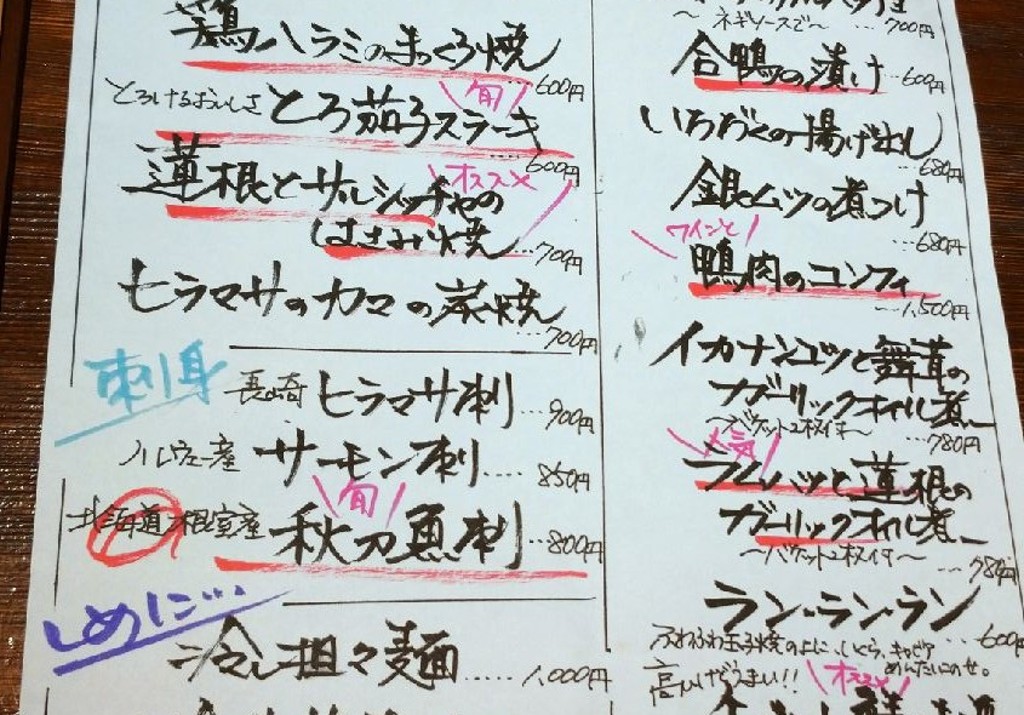 鶏ハラミのまっくろ焼
600円
旬
とろけるおいしさ とろ茄子ステーキ
600円
オススメ
蓮根とサルシッチャの
はさみ焼
…700円
ヒラマサのカマの炭焼
…700円
刺身
長崎 ヒラマサ刺…900円
ノルウェー産 サーモン刺….850円
旬
北海道根室産 秋刀魚刺…800円
しめに…
冷やし担々麺……1,000円
〜ネギソースで〜 …700円
合鴨の漬け…600円
いちじくの揚げ出し
…680円
銀ムツの煮つけ
…680円
ワインと
鴨肉のコンフィ
…1,500円
イカナンコツと舞茸の
ガーリックオイル煮
〜バケット2枚付〜
…780円
人気
ラムハツと蓮根の
ガーリックオイル煮
〜バケット2枚付〜
…780円
ラン・ラン・ラン
…600円
ふわふわ玉子焼の上に、いくら、キャビア
めんたいこのせ。
高いけどうまい!!
オススメ